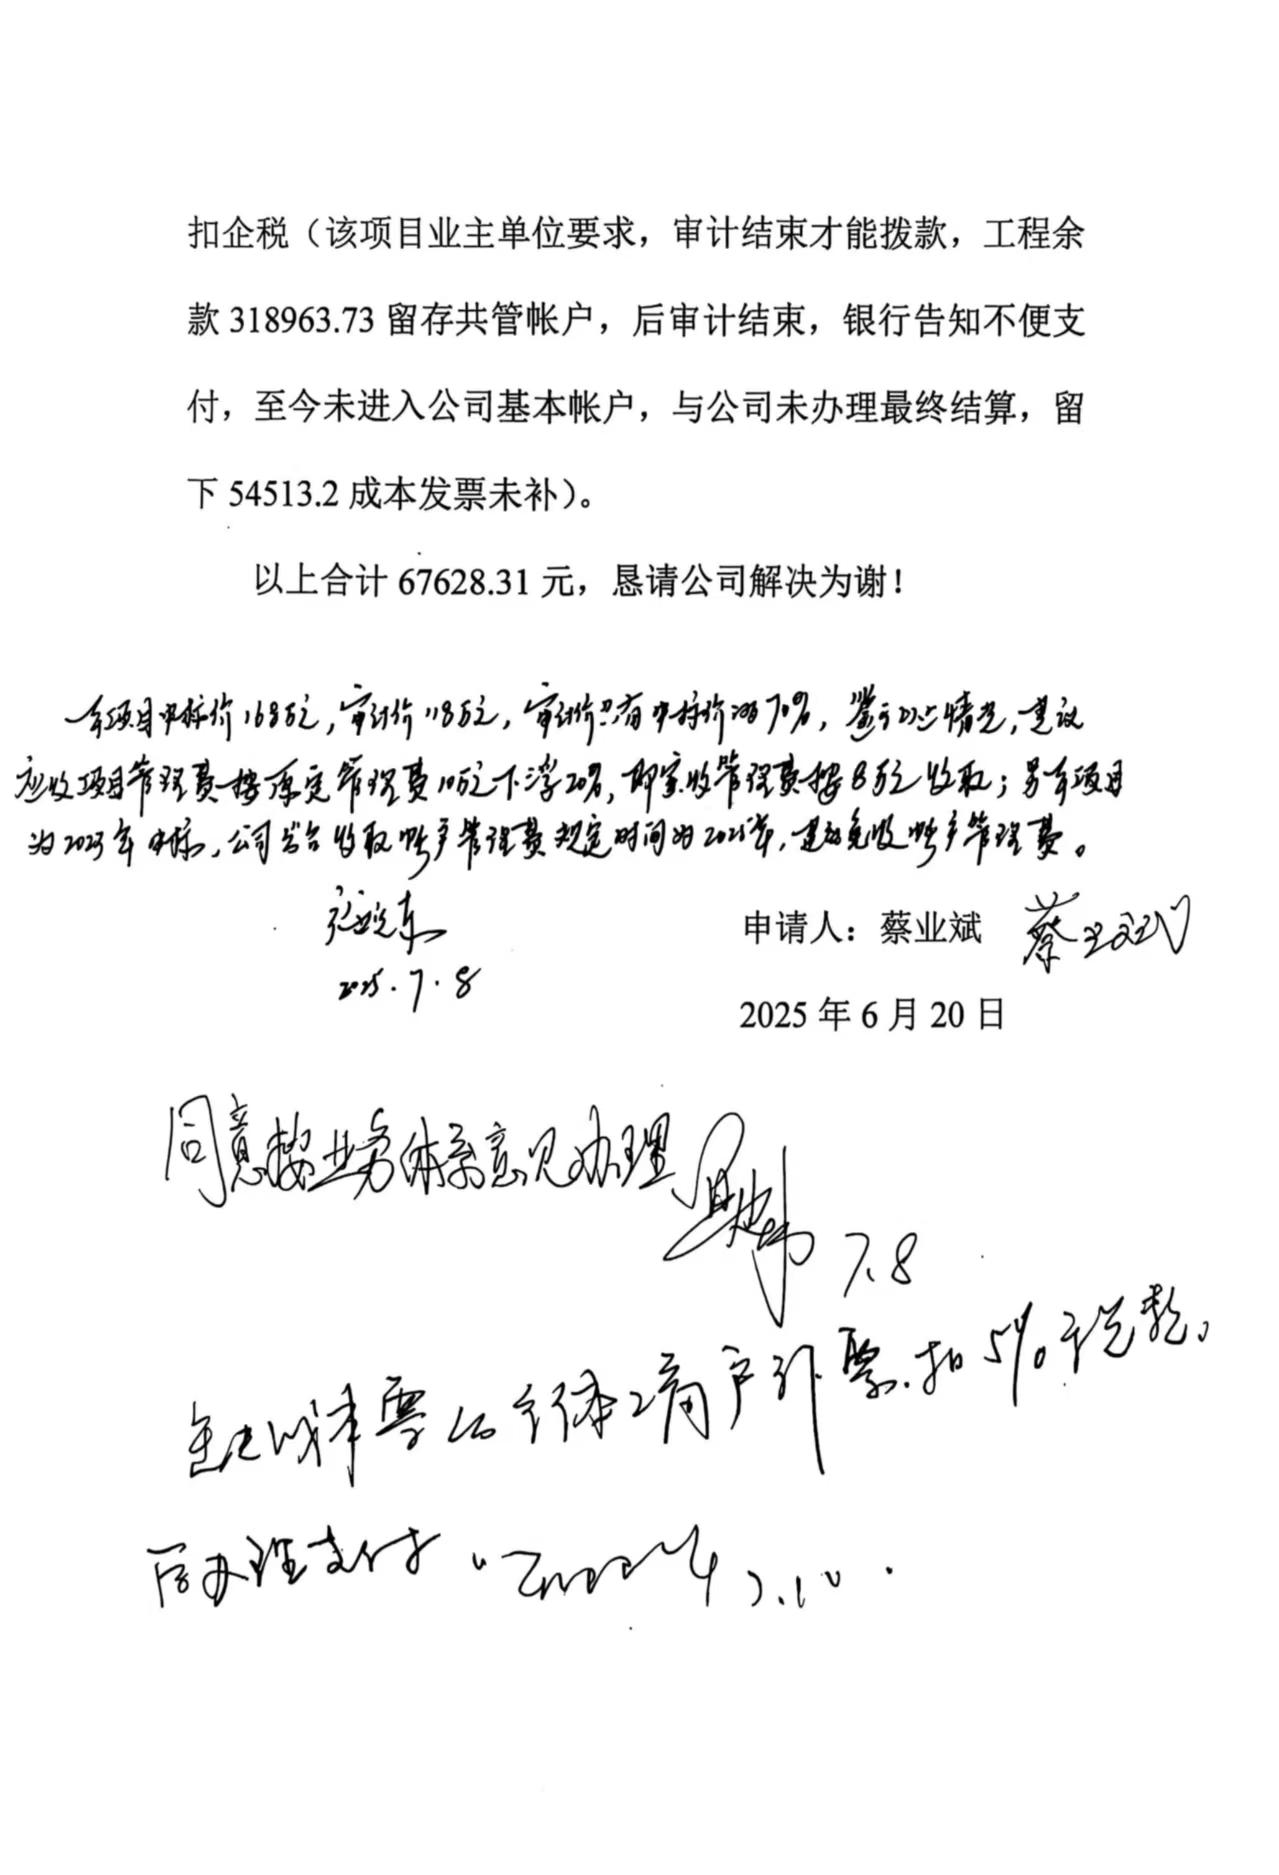 扣企税（该项目业主单位要求，审计结束才能拨款，工程余
款 318963.73 留存共管帐户，后审计结束，银行告知不便支
付，至今未进入公司基本帐户，与公司未办理最终结算，留
下 54513.2 成本发票未补）。
以上合计 67628.31 元，恳请公司解决为谢！
本项目中标价168万元，审计价118万元，审计价只有中标价的70%，鉴于以上情况，建议
应收项目管理费按原定管理费10万元下浮20%，即实收管理费按8万元收取；另本项目
为2023年中标，公司出台收取帐户管理费规定时间为2025年，建议免收帐户管理费。
2025.7.8
申请人：蔡业斌 蔡业斌
2025 年 6 月 20 日
同意按业务体系意见办理 7.8
成本票 个体工商户 票 扣5%税款，
后办理支付 7.10